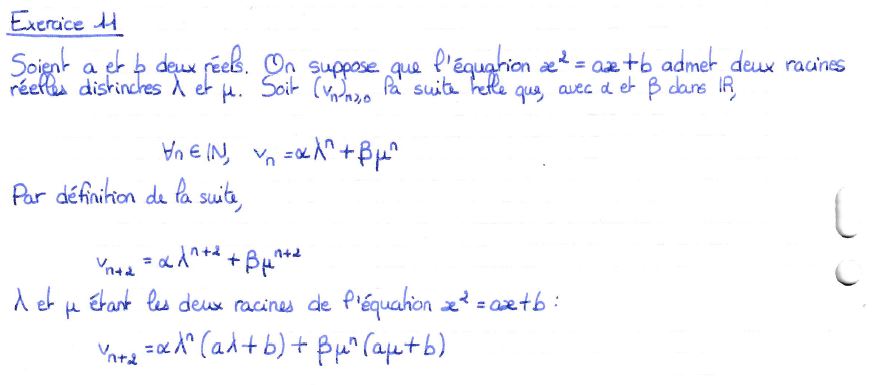 Exercice 11
Soient a et b deux réels. On suppose que l'équation x² = ax+b admet deux racines
réelles distinctes λ et μ. Soit (vₙ)ₙ≥₀ la suite telle que, avec α et β dans ℝ,
∀n ∈ ℕ, vₙ = αλⁿ + βμⁿ
Par définition de la suite,
vₙ₊₂ = αλⁿ⁺² + βμⁿ⁺²
λ et μ étant les deux racines de l'équation x² = ax+b :
vₙ₊₂ = αλⁿ(aλ+b) + βμⁿ(aμ+b)